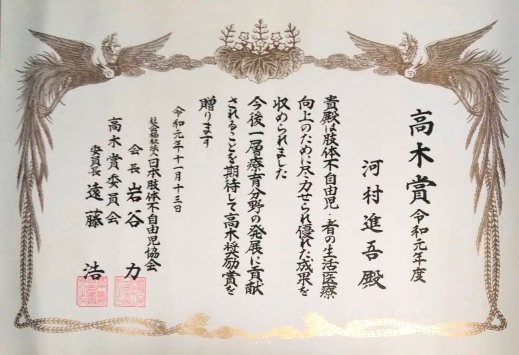 高木賞 令和元年度
河村進吾殿
貴殿は肢体不自由児・者の生活医療
向上のために尽力せられ優れた成果を
収められました
今後一層療育分野の発展に貢献
されることを期待して高木奨励賞を
贈ります
令和元年十一月十三日
社会福祉法人日本肢体不自由児協会
会長 岩谷 力
高木賞委員会
委員長 遠藤 浩